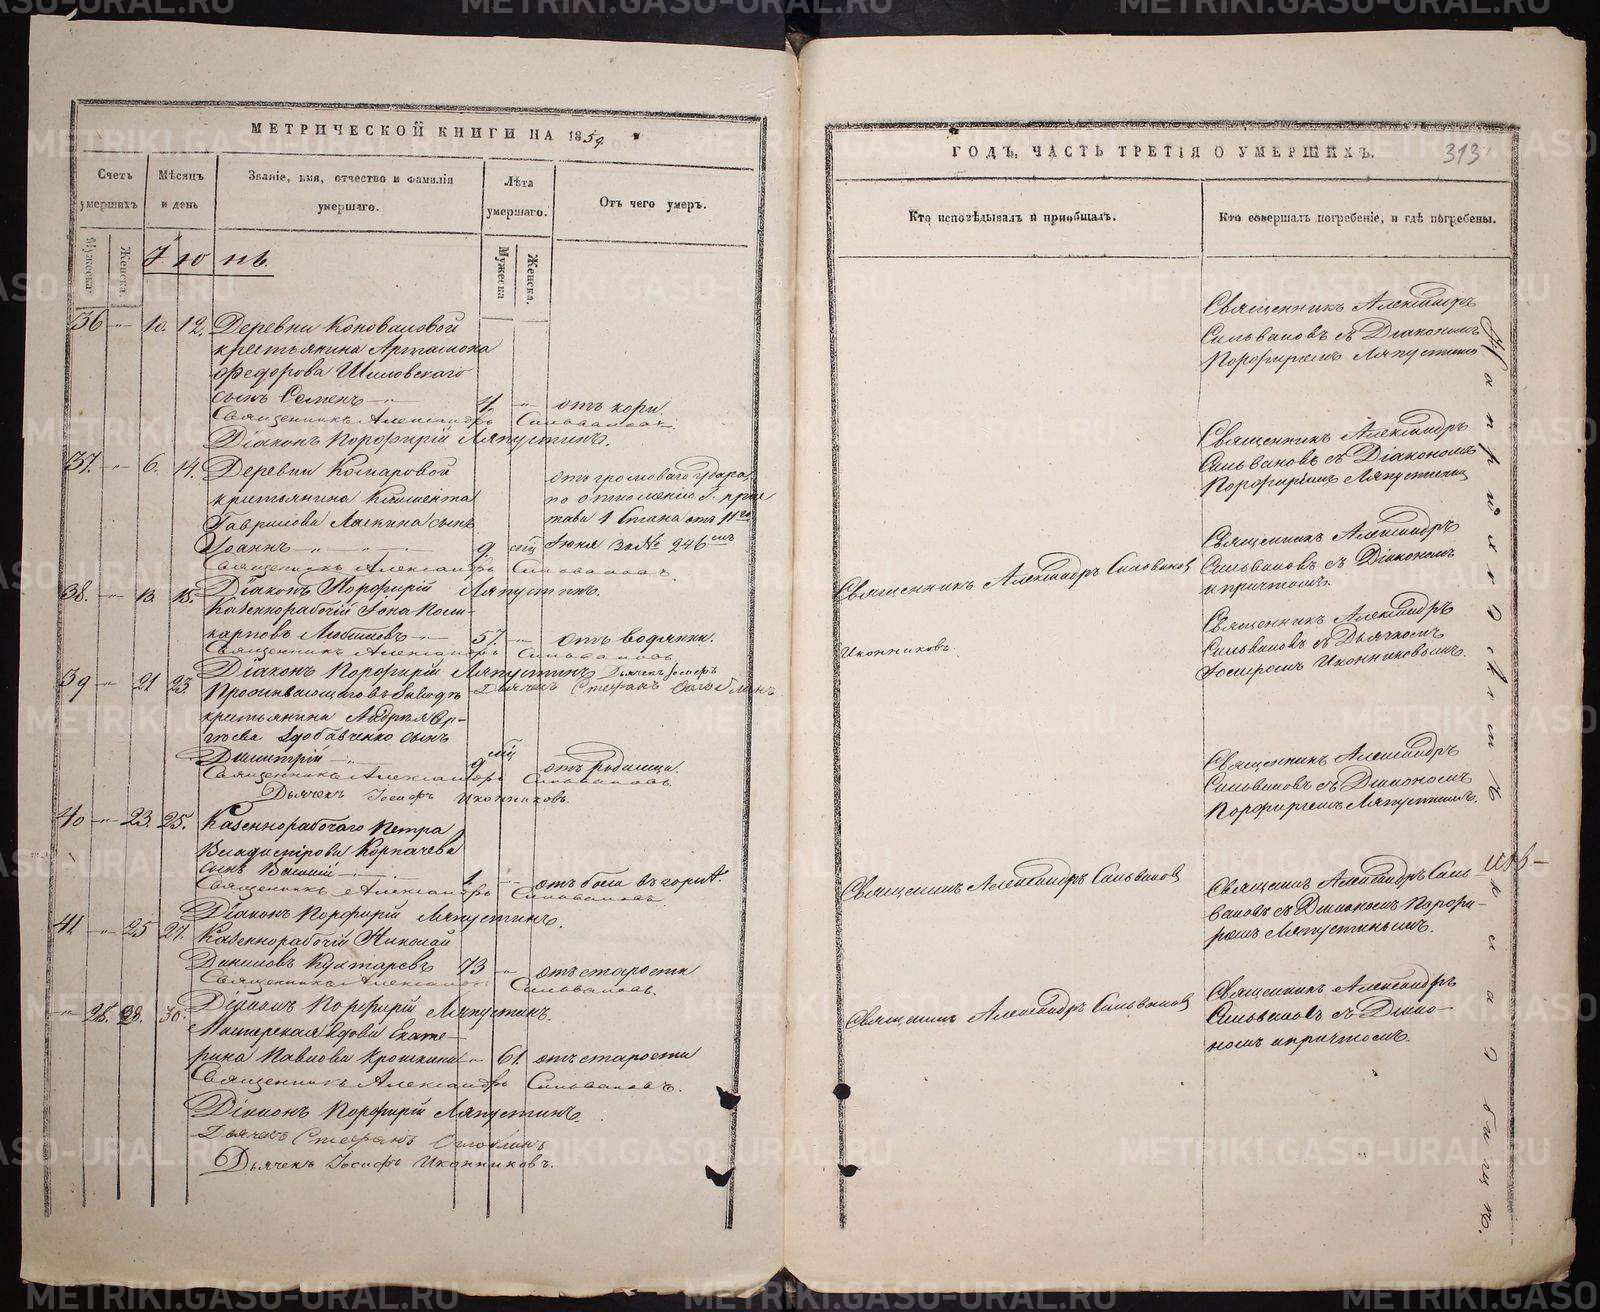 МЕТРИЧЕСКОЙ КНИГИ НА 1859
Счетъ умершихъ
Мѣсяцъ и день
Званіе, имя, отчество и фамилія умершаго.
Лѣта умершаго.
Отъ чего умеръ.
Мужеска
Женска
Мужеска
Женска.
Іюнь.
36 10. 12. Деревни Коноваловой
крестьянина Артамона
Федорова Шиловскаго
сынъ Семенъ отъ кори.
Священникъ Александръ Сильвановъ.
Діаконъ Порфирій Ляпустинъ.
37. 6. 14. Деревни Комаровой
крестьянина Климента
Гаврилова Ляпкина сынъ
Іоаннъ 9. мц
отъ громоваго удара,
по отношенію Г. при
става 1 Стана отъ 11го
Іюня за № 246мъ
Священникъ Александръ Сильвановъ.
Діаконъ Порфирій Ляпустинъ.
38. 13. 15. Казеннорабочій Іона Поли-
карповъ Любимовъ 57. отъ водянки.
Священникъ Александръ Сильвановъ.
Діаконъ Порфирій Ляпустинъ Дьячекъ Іосифъ
39 21 23. Проживающаго въ заводѣ
Дьячекъ Стефанъ
крестьянина Андрея Сер-
гѣева сынъ
Димитрій 9 мц отъ родимца.
Священникъ Александръ Сильвановъ.
Дьячекъ Іосифъ Иконниковъ.
40 23. 25. Казеннорабочаго Петра
Владимірова Корпачева
сынъ Василій 1. отъ боли въ горлѣ.
Священникъ Александръ Сильвановъ.
Діаконъ Порфирій Ляпустинъ.
41. 25 27. Казеннорабочій Николай
Даниловъ 73 отъ старости
Священникъ Александръ Сильвановъ.
Діаконъ Порфирій Ляпустинъ.
28. 30. Мастерская вдова Екате-
рина Павлова Крошкина 61. отъ старости
Священникъ Александръ Сильвановъ.
Діаконъ Порфирій Ляпустинъ.
Дьячекъ Стефанъ
Дьячекъ Іосифъ Иконниковъ.
ГОДЪ, ЧАСТЬ ТРЕТІЯ О УМЕРШИХЪ.
313
Кто исповѣдывалъ и пріобщалъ.
Кто совершалъ погребеніе, и гдѣ погребены.
Священникъ Александръ
Сильвановъ съ Діакономъ
Порфиріемъ Ляпустинымъ
Священникъ Александръ
Сильвановъ съ Діакономъ
Порфиріемъ Ляпустинымъ
Священникъ Александръ Сильвановъ
Священникъ Александръ
Сильвановъ съ Діакономъ
и причтомъ.
Иконниковъ.
Священникъ Александръ
Сильвановъ съ Дьячкомъ
Іосифомъ Иконниковымъ.
Священникъ Александръ
Сильвановъ съ Діакономъ
Порфиріемъ Ляпустинымъ.
Священникъ Александръ Сильвановъ
Священникъ Александръ Силь
вановъ съ Діакономъ Порфи-
ріемъ Ляпустинымъ.
Священникъ Александръ Сильвановъ
Священникъ Александръ
Сильвановъ съ Діако-
номъ и причтомъ.
На приходскомъ кладбищѣ.
METRIKI.GASO-URAL.RU